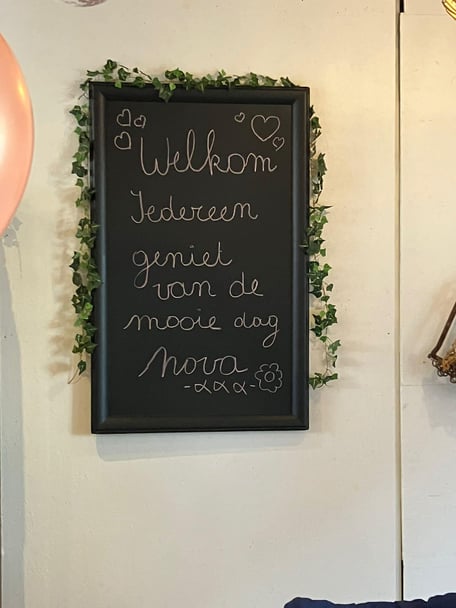 Welkom
Iedereen
geniet
van de
mooie dag
Nova
-xxx-